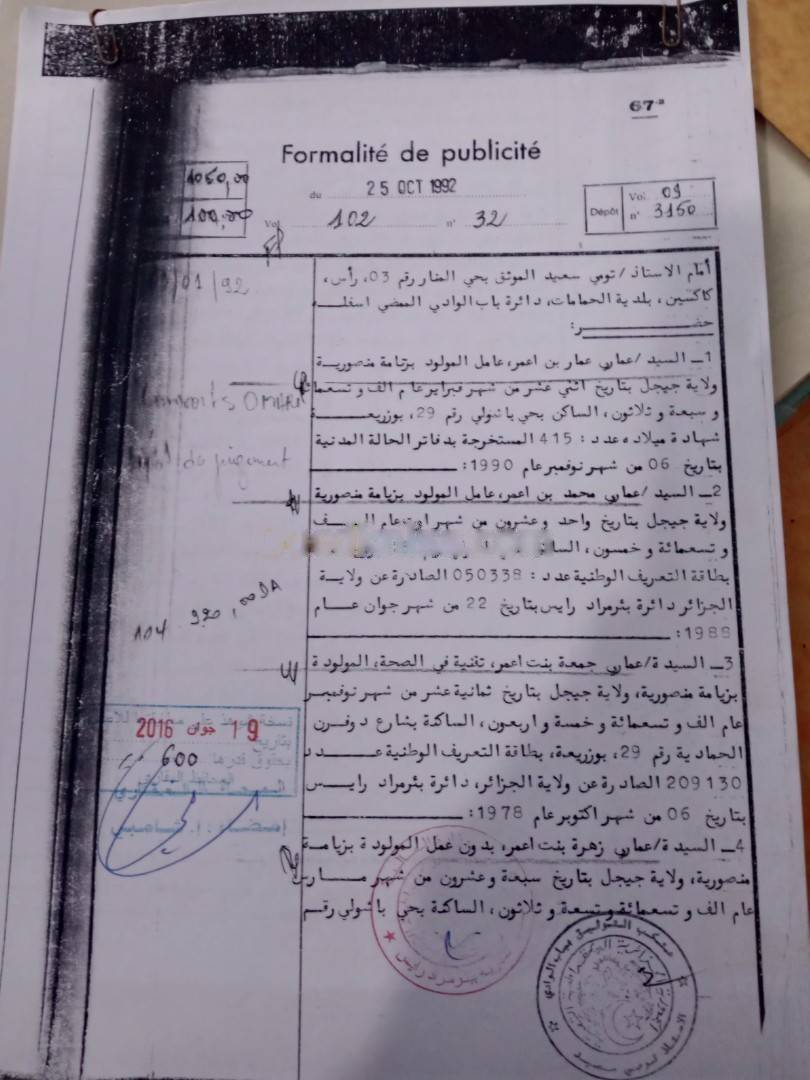 67-a
Formalité de publicité
du 25 OCT 1992
Vol 102 n° 32
1050,00
100,00
Dépôt Vol. 09
n° 3150
01/92
أمام الاستاذ / تومي سعيد الموثق بحي المنار رقم 03، رأس،
كاكسين، بلدية الحمامات، دائرة باب الوادي الممضي اسفلــه
حضـــــــــر:
1ـ السيد /عماري عمار بن اعمر، عامل المولود بزيامة منصورية
ولاية جيجل بتاريخ اثني عشر من شهر فبراير عام الف و تسعمائة
و سبعة و ثلاثون، الساكن بحي باشولي رقم 29، بوزريعــــــة
شهادة ميلاده عدد : 415 المستخرجة بدفاتر الحالة المدنية
بتاريخ 06 من شهر نوفمبر عام 1990 :
2ـ السيد /عماري محمد بن اعمر، عامل المولود بزيامة منصورية
ولاية جيجل بتاريخ واحد و عشرون من شهر اوت عام الــــف
و تسعمائة و خمسون،
بطاقة التعريف الوطنية عدد : 050338 الصادرة عن ولايــة
الجزائر دائرة بئرمراد رايس بتاريخ 22 من شهر جوان عــام
1988 :
3ـ السيدة /عماري جمعة بنت اعمر، تقنية في الصحة، المولودة
بزيامة منصورية، ولاية جيجل بتاريخ ثمانية عشر من شهر نوفمبـر
عام الف و تسعمائة و خمسة و اربعون، الساكنة بشارع دوفرن
الحمادية رقم 29، بوزريعة، بطاقة التعريف الوطنية عـــدد
209130 الصادرة عن ولاية الجزائر، دائرة بئرمراد رايــس
بتاريخ 06 من شهر اكتوبر عام 1978 :
4ـ السيدة /عماري زهرة بنت اعمر، بدون عمل المولودة بزيامــة
منصورية، ولاية جيجل بتاريخ سبعة وعشرون من شهر مــــارس
عام الف و تسعمائة و تسعة و ثلاثون، الساكنة بحي باشولي رقم
104 920,00 DA
19 جوان 2016
600
مكتب التوثيق بباب الوادي